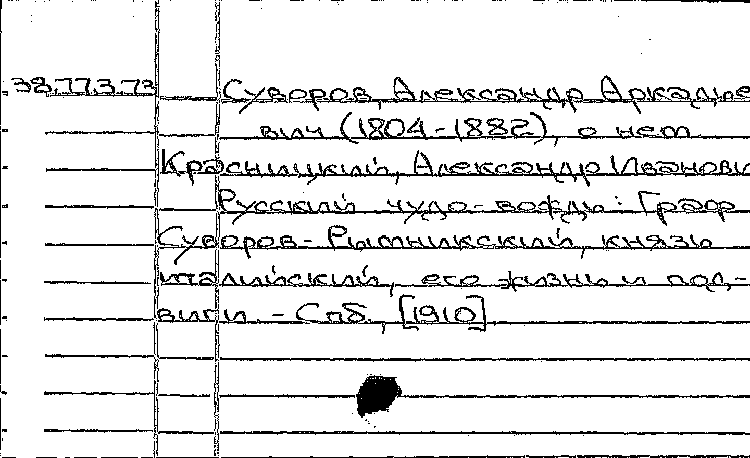 38.77.3.73 Суворов, Александр Аркадье
вич (1804-1882), о нем
Красницкий, Александр Иванови
Русский чудо-вождь: Граф
Суворов-Рымникский, князь
италийский, его жизнь и под-
виги. - Спб., [1910].